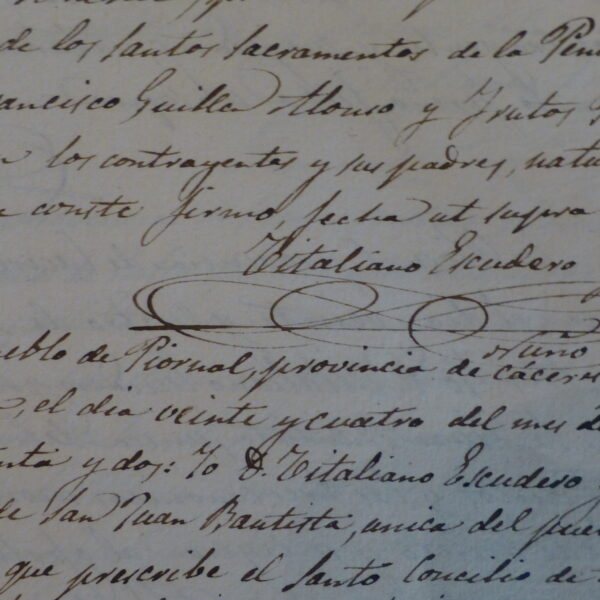 de los santos sacramentos de la Peni
rancisco Guilla Alonso y Frutos
n los contrayentes y sus padres, natu
e conste firmo, fecha ut supra
Titaliano Escudero
Nuño
ueblo de Piornal, provincia de Cáceres
, el dia veinte y cuatro del mes de
nta y dos: Yo D. Titaliano Escudero
de San Juan Bautista, unica del pue
que prescribe el Santo Concilio de